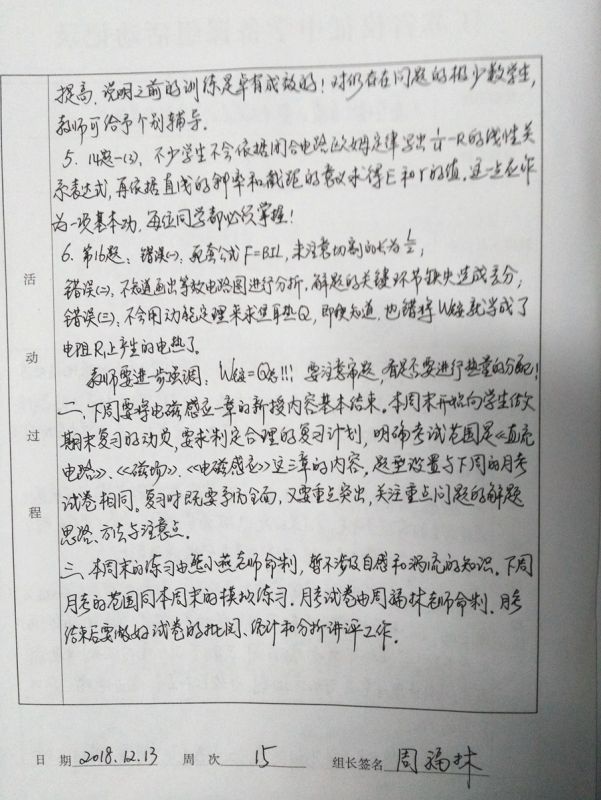 提高，说明之前的训练是卓有成效的！对仍存在问题的极少数学生，
教师可给予个别辅导。
5. 14题-(3)，不少学生不会依据闭合电路欧姆定律写出1/U-R的线性关
系表达式，再依据直线的斜率和截距的意义求得E和r的值，这一点应作
为一项基本功，每位同学都必须掌握！
6. 第16题：错误(一)，死套公式F=BIL，未注意切割的长为L/2；
错误(二)，不知道画出等效电路图进行分析，解题的关键环节缺失造成丢分；
错误(三)，不会用动能定理来求焦耳热Q，即使知道，也错将W安就当成了
电阻R上产生的电热了。
教师要进一步强调：W安=Q总!!! 要注意审题，看是否要进行热量的分配！
二、下周要将电磁感应一章的新授内容基本结束。本周末开始向学生做次
期末复习的动员，要求制定合理的复习计划，明确考试范围是《直流
电路》、《磁场》、《电磁感应》这三章的内容，题型设置与下周的月考
试卷相同。复习时既要全面，又要重点突出，关注重点问题的解题
思路、方法与注意点。
三、本周末的练习由熊小燕老师命制，暂不涉及自感和涡流的知识。下周
月考的范围同本周末的模拟练习。月考试卷由周福林老师命制。月考
结束后要做好试卷的批阅、统计和分析讲评工作。
活
动
过
程
日 期 2018.12.13 周 次 15 组长签名 周福林